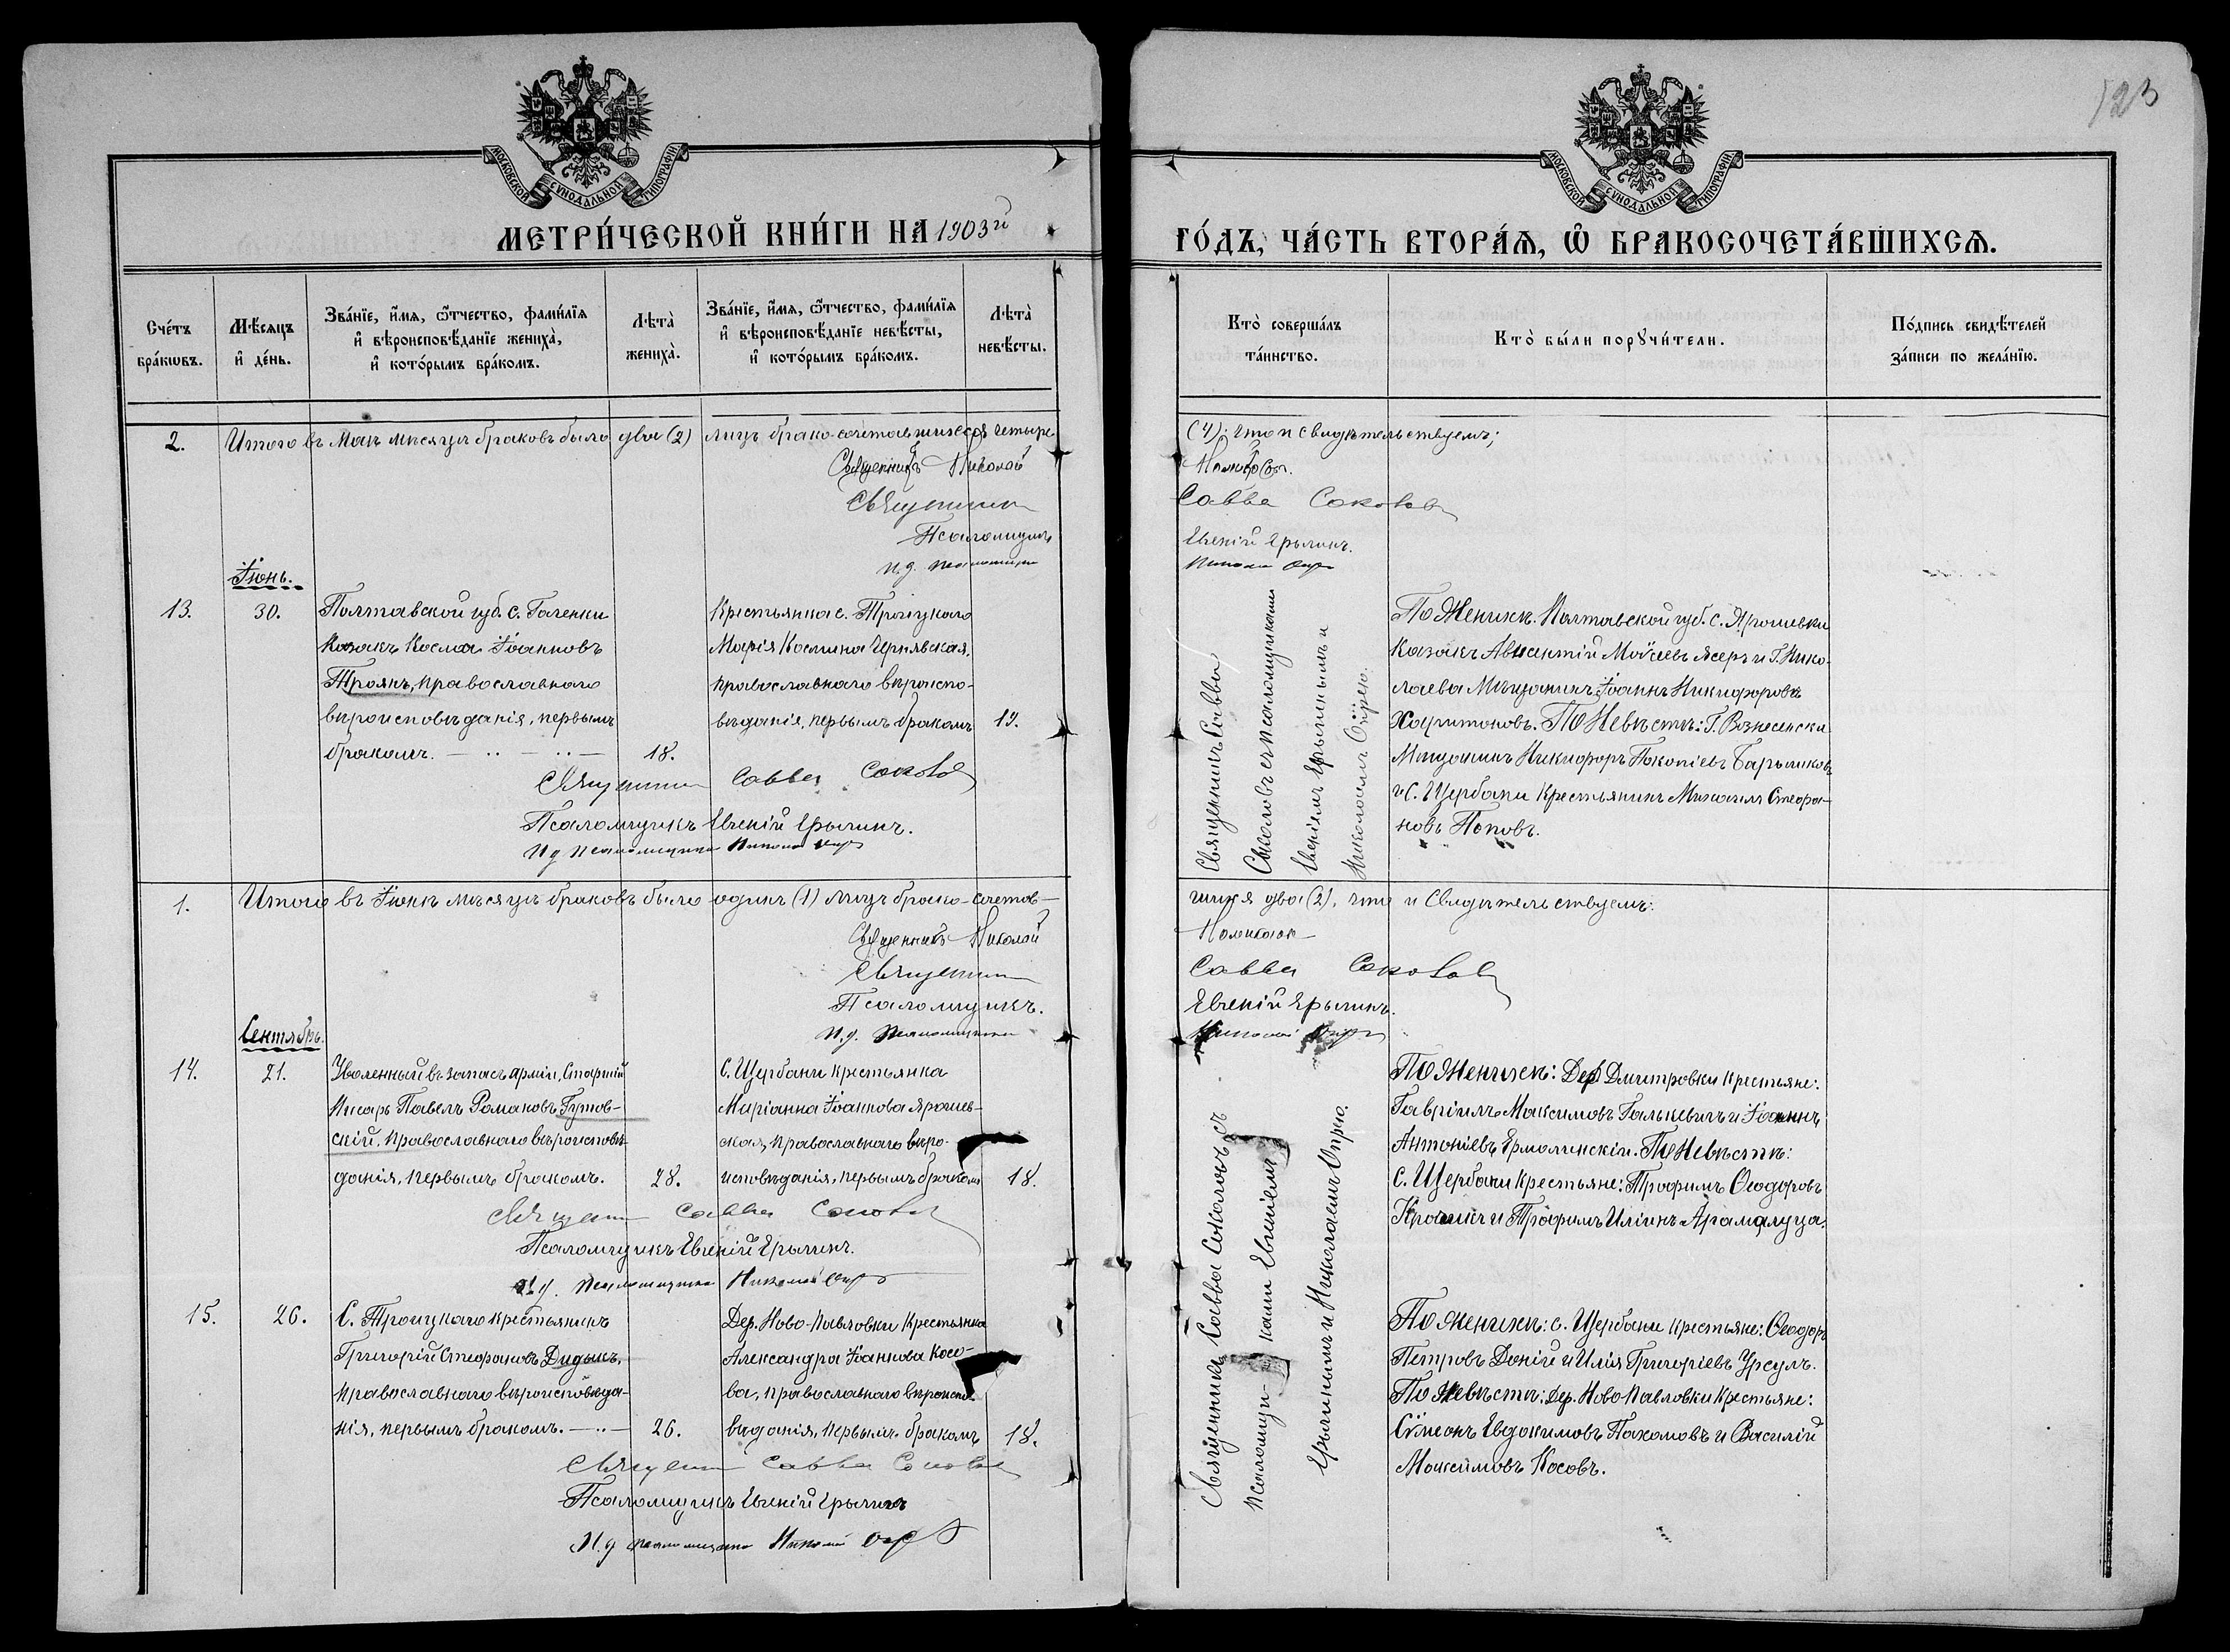 123
МОСКОВСКОЙ СѴНОДАЛЬНОЙ ТИПОГРАФІИ
МЕТРИ́ЧЕСКОЙ КНИ́ГИ НА 1903й
Сче́тъ бра́кѡвъ.
Мѣ́сяцъ и҆ де́нь.
Зва́нїе, и҆́мя, ѻ҆́тчество, фами́лїя и҆ вѣроисповѣ́данїе жениха̀, и҆ кото́рымъ бра́комъ.
Лѣта̀ жениха̀.
Зва́нїе, и҆́мя, ѻ҆́тчество, фами́лїя и҆ вѣроисповѣ́данїе невѣ́сты, и҆ кото́рымъ бра́комъ.
Лѣта̀ невѣ́сты.
2. Итого въ Маѣ мѣсяцѣ браковъ было два (2) лицъ брако-сочетавшихся четыре
Священникъ Николай
Священник
Псаломщикъ
И.д. псаломщика
Іюнь.
13.
30.
Полтавской губ. с.
Казакъ Косма Іоанновъ
Троянъ, православнаго
вѣроисповѣданія, первымъ
бракомъ.
18.
Крестьянка с. Троицкаго
Марія Космина Чернявская,
православнаго вѣроиспо-
вѣданія, первымъ бракомъ
17.
Священник Савва Соколов
Псаломщикъ Евгеній Ерыгинъ.
И д псаломщика Николай
1. Итого въ Іюнѣ мѣсяцѣ браковъ было одинъ (1) лицъ брако-сочетав-
Священникъ Николай
Священник
Псаломщикъ.
И.д. псаломщика
Сентябрь.
14.
21.
Уволенный въ запасъ арміи, Старшій
Писарь Павелъ Романовъ Гутов-
скій, православнаго вѣроисповѣ-
данія, первымъ бракомъ.
28.
С. Щербани крестьянка
Маріанна Іоаннова Ярошев-
ская, православнаго вѣро-
исповѣданія, первымъ бракомъ
18.
Священник Савва Соколов
Псаломщикъ Евгеній Ерыгинъ.
И.д. псаломщика Николай
15.
26.
С. Троицкаго крестьянинъ
Григорій Стефановъ Дидыкъ,
православнаго вѣроисповѣда-
нія, первымъ бракомъ.
26.
Дер. Ново-Павловки крестьянка
Александра Іоаннова Косо-
ва, православнаго вѣроиспо-
вѣданія, первымъ бракомъ
18.
Священник Савва Соколов
Псаломщикъ Евгеній Ерыгинъ
И.д псаломщика Николай
МОСКОВСКОЙ СѴНОДАЛЬНОЙ ТИПОГРАФІИ
ГО́ДЪ, ЧА́СТЬ ВТОРА́Я, Ѡ҆ БРАКОСОЧЕТА́ВШИХСЯ.
Кто̀ соверша́лъ та́инство.
Кто̀ бы́ли порꙋчи́тели.
По́дпись свидѣ́телей за́писи по жела́нїю.
(4); что и свидѣтельствуемъ;
Савва Соколов
Евгеній Ерыгинъ.
Николай
Священникъ Савва
Соколовъ съ псаломщиками
Евгеніемъ Ерыгинымъ и
Николаемъ
По Женихѣ: Полтавской губ. с. Ярошевки
Казакъ Авксентій Моѵсеевъ и Г. Нико-
лаева Мѣщанинъ Іоаннъ Никифоровъ
Харитоновъ. По Невѣстѣ: Г. Вознесенска
Мѣщанинъ Никифоръ
и С. Щербани крестьянинъ Михаилъ Стефа-
новъ Поповъ.
шихся два (2), что и свидѣтельствуемъ:
Савва Соколов
Евгеній Ерыгинъ.
Николай
Священникъ Савва Соколовъ съ
псаломщи-ками Евгеніемъ
Ерыгинымъ и Николаемъ
По Женихѣ: Дер. Дмитровки крестьяне:
Гавріилъ Максимовъ Галькевичъ и Іоаннъ
Антоніевъ Ермолинскій. По Невѣстѣ:
С. Щербани крестьяне: Трофимъ Ѳеодоровъ
и Трофимъ Иліинъ
По Женихѣ: с. Щербани крестьяне: Ѳеодоръ
Петровъ Доній и Илія Григоріевъ Урсулъ.
По Невѣстѣ: Дер. Ново Павловки крестьяне:
Сѵмеонъ Евдокимовъ Пахомовъ и Василій
Максимовъ Косовъ.